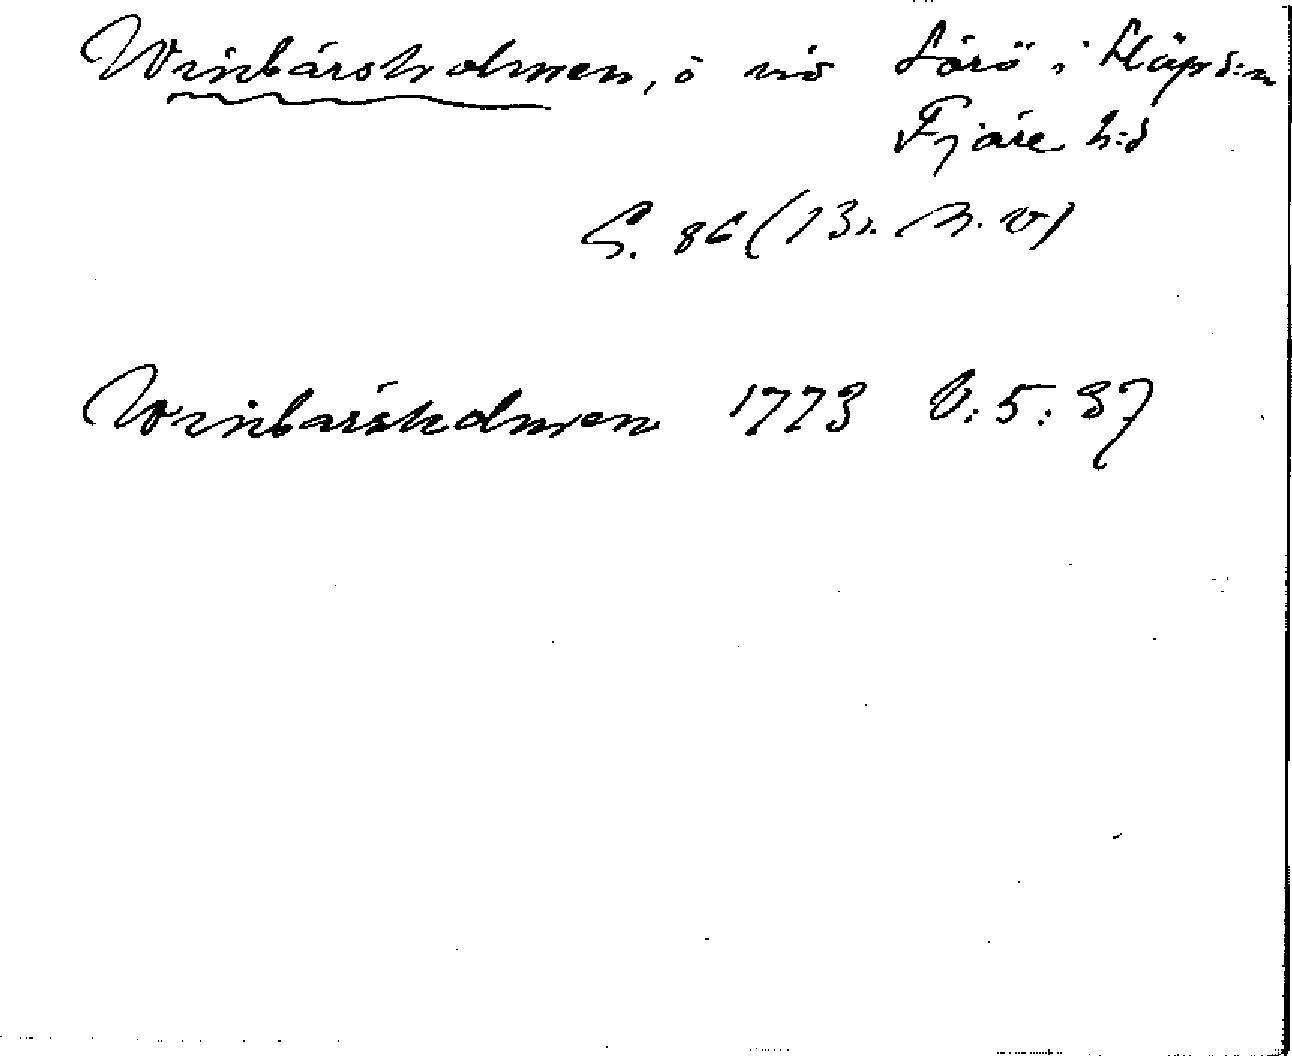 Winbärsholmen, ö vid Särö i Släps s:n
Fjäre h:d
G. 86 (13. n. v)
Winbärsholmen 1773 V:5:37